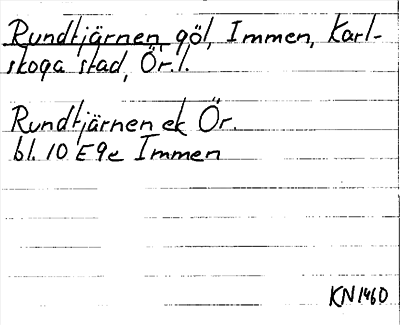 Rundtjärnen, göl, Immen, Karl-
skoga stad, Ör.l.
Rundtjärnen ek Ör.
bl. 10 E9e Immen
KN1460